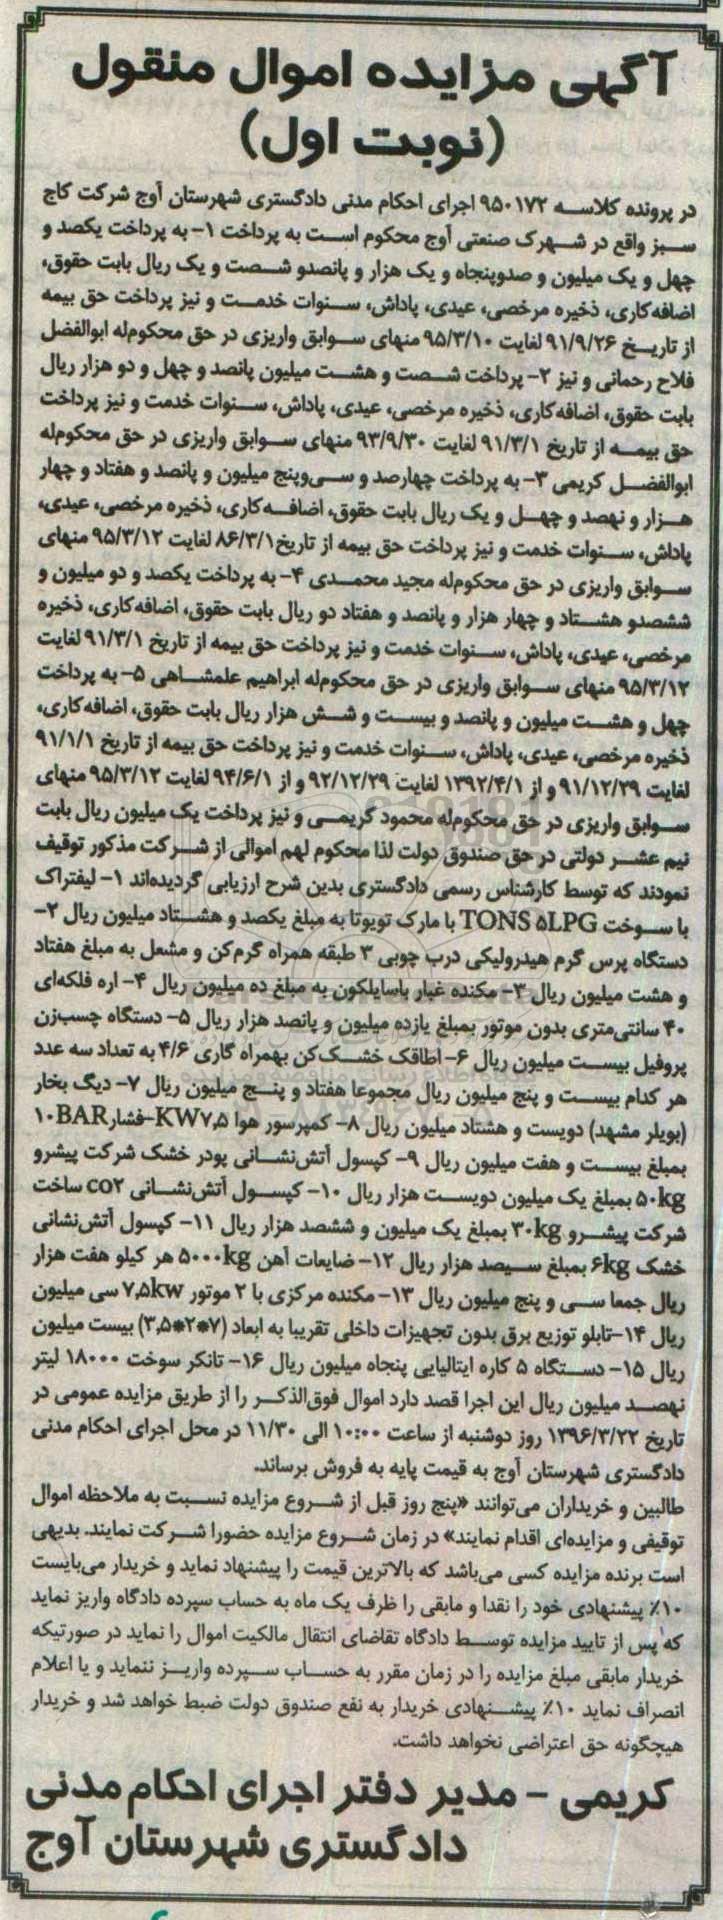 آگهی مزایده اموال منقول
(نوبت اول)
در پرونده کلاسه ۹۵۰۱۷۲ اجرای احکام مدنی دادگستری شهرستان آوج شرکت کاج
سبز واقع در شهرک صنعتی آوج محکوم است به پرداخت ۱- به پرداخت یکصد و
چهل و یک میلیون و صدوپنجاه و یک هزار و پانصدو شصت و یک ریال بابت حقوق،
اضافه‌کاری، ذخیره مرخصی، عیدی، پاداش، سنوات خدمت و نیز پرداخت حق بیمه
از تاریخ ۹۱/۹/۲۶ لغایت ۹۵/۳/۱۰ منهای سوابق واریزی در حق محکوم‌له ابوالفضل
فلاح رحمانی و نیز ۲- پرداخت شصت و هشت میلیون پانصد و چهل و دو هزار ریال
بابت حقوق، اضافه‌کاری، ذخیره مرخصی، عیدی، پاداش، سنوات خدمت و نیز پرداخت
حق بیمه از تاریخ ۹۱/۳/۱ لغایت ۹۳/۹/۳۰ منهای سوابق واریزی در حق محکوم‌له
ابوالفضل کریمی ۳- به پرداخت چهارصد و سی‌وپنج میلیون و پانصد و هفتاد و چهار
هزار و نهصد و چهل و یک ریال بابت حقوق، اضافه‌کاری، ذخیره مرخصی، عیدی،
پاداش، سنوات خدمت و نیز پرداخت حق بیمه از تاریخ ۸۶/۳/۱ لغایت ۹۵/۳/۱۲ منهای
سوابق واریزی در حق محکوم‌له مجید محمدی ۴- به پرداخت یکصد و دو میلیون و
ششصدو هشتاد و چهار هزار و پانصد و هفتاد دو ریال بابت حقوق، اضافه‌کاری، ذخیره
مرخصی، عیدی، پاداش، سنوات خدمت و نیز پرداخت حق بیمه از تاریخ ۹۱/۳/۱ لغایت
۹۵/۳/۱۲ منهای سوابق واریزی در حق محکوم‌له ابراهیم علمشاهی ۵- به پرداخت
چهل و هشت میلیون و پانصد و بیست و شش هزار ریال بابت حقوق، اضافه‌کاری،
ذخیره مرخصی، عیدی، پاداش، سنوات خدمت و نیز پرداخت حق بیمه از تاریخ ۹۱/۱/۱
لغایت ۹۱/۱۲/۲۹ و از ۱۳۹۲/۴/۱ لغایت ۹۲/۱۲/۲۹ و از ۹۴/۶/۱ لغایت ۹۵/۳/۱۲ منهای
سوابق واریزی در حق محکوم‌له محمود کریمی و نیز پرداخت یک میلیون ریال بابت
نیم عشر دولتی در حق صندوق دولت لذا محکوم لهم اموالی از شرکت مذکور توقیف
نمودند که توسط کارشناس رسمی دادگستری بدین شرح ارزیابی گردیده‌اند ۱- لیفتراک
با سوخت TONS ۵LPG با مارک تویوتا به مبلغ یکصد و هشتاد میلیون ریال ۲-
دستگاه پرس گرم هیدرولیکی درب چوبی ۳ طبقه همراه گرم‌کن و مشعل به مبلغ هفتاد
و هشت میلیون ریال ۳- مکنده غبار باسایلکون به مبلغ ده میلیون ریال ۴- اره فلکه‌ای
۴۰ سانتی‌متری بدون موتور بمبلغ یازده میلیون و پانصد هزار ریال ۵- دستگاه چسب‌زن
پروفیل بیست میلیون ریال ۶- اطاقک خشک‌کن بهمراه گاری ۴/۶ به تعداد سه عدد
هر کدام بیست و پنج میلیون ریال مجموعا هفتاد و پنج میلیون ریال ۷- دیگ بخار
(بویلر مشهد) دویست و هشتاد میلیون ریال ۸- کمپرسور هوا KW۷,۵-فشار۱۰BAR
بمبلغ بیست و هفت میلیون ریال ۹- کپسول آتش‌نشانی پودر خشک شرکت پیشرو
۵۰kg بمبلغ یک میلیون دویست هزار ریال ۱۰- کپسول آتش‌نشانی co۲ ساخت
شرکت پیشرو ۳۰kg بمبلغ یک میلیون و ششصد هزار ریال ۱۱- کپسول آتش‌نشانی
خشک ۶kg بمبلغ سیصد هزار ریال ۱۲- ضایعات آهن ۵۰۰۰kg هر کیلو هفت هزار
ریال جمعا سی و پنج میلیون ریال ۱۳- مکنده مرکزی با ۲ موتور ۷,۵kw سی میلیون
ریال ۱۴-تابلو توزیع برق بدون تجهیزات داخلی تقریبا به ابعاد (۷*۲*۳,۵) بیست میلیون
ریال ۱۵- دستگاه ۵ کاره ایتالیایی پنجاه میلیون ریال ۱۶- تانکر سوخت ۱۸۰۰۰ لیتر
نهصد میلیون ریال این اجرا قصد دارد اموال فوق‌الذکر را از طریق مزایده عمومی در
تاریخ ۱۳۹۶/۳/۲۲ روز دوشنبه از ساعت ۱۰:۰۰ الی ۱۱/۳۰ در محل اجرای احکام مدنی
دادگستری شهرستان آوج به قیمت پایه به فروش برساند.
طالبین و خریداران می‌توانند «پنج روز قبل از شروع مزایده نسبت به ملاحظه اموال
توقیفی و مزایده‌ای اقدام نمایند» در زمان شروع مزایده حضورا شرکت نمایند. بدیهی
است برنده مزایده کسی می‌باشد که بالاترین قیمت را پیشنهاد نماید و خریدار می‌بایست
۱۰٪ پیشنهادی خود را نقدا و مابقی را ظرف یک ماه به حساب سپرده دادگاه واریز نماید
که پس از تایید مزایده توسط دادگاه تقاضای انتقال مالکیت اموال را نماید در صورتیکه
خریدار مابقی مبلغ مزایده را در زمان مقرر به حساب سپرده واریز ننماید و یا اعلام
انصراف نماید ۱۰٪ پیشنهادی خریدار به نفع صندوق دولت ضبط خواهد شد و خریدار
هیچگونه حق اعتراضی نخواهد داشت.
کریمی - مدیر دفتر اجرای احکام مدنی
دادگستری شهرستان آوج